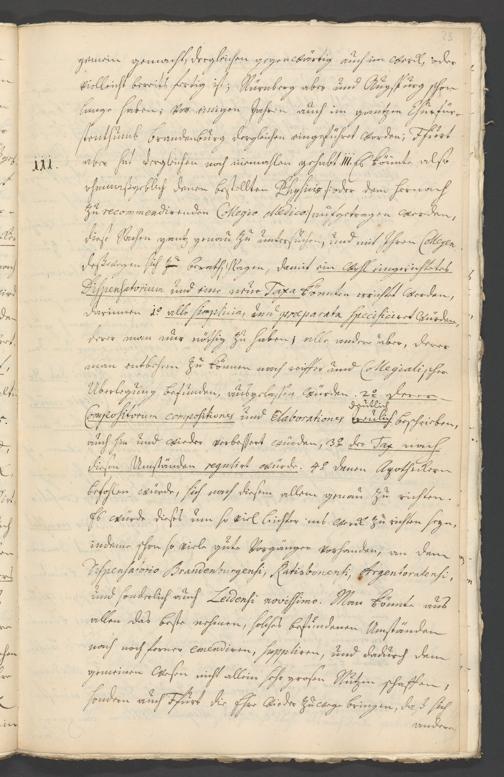 23
gemein gemacht, dergleichen gegenwärtig auch im Werck, oder
vielleicht bereits fertig ist; Nürnberg aber und Augspurg schon
lange haben; vor einigen Jahren auch im gantzen Churfür-
stenthum Brandenburg dergleichen eingeführt worden; Erfurt
aber hat dergleichen noch niemahlen gehabt. III. Es könnte also
III.
ohnmaßgeblich denen bestellten Physicis oder dem hernach
zu recommendirenden Collegio Medico aufgetragen werden,
diese Sachen gantz genau zu untersuchen, und mit Ihren Collegen
deßwegen sich zu berathschlagen, damit ein wohl eingerichtetes
Dispensatorium und eine neue Taxa könnten errichtet werden,
darinnen 1º alle simplicia, und præparata specificiret würden,
derer man nur nöthig zu haben; alle andere aber, derer
man entbehren zu können nach reiffer und Collegialischer
Uberlegung befunden, ausgelassen würden. 2º Derer
Compositorum compositiones und Elaborationes treulich beschrieben,
deutlich
auch hin und wieder verbessert würden, 3º der Tax nach
diesen Umständen regulirt würde. 4º denen Apotheckern
befohlen würde, sich nach diesem allem genau zu richten.
Es würde dieses um so viel leichter ins Werck zu richten seyn,
indeme schon so viele gute Vorgänger vorhanden, an dem
Dispensatorio Brandenburgensi, Ratisbonensi, Argentoratensi,
und sonderlich auch Leidensi novissimo. Man könnte aus
allen das beste nehmen, solches befundenen Umständen
nach noch ferner emendiren, suppliren, und dadurch dem
gemeinen Wesen nicht allein sehr grosen Nutzen schaffen,
sondern auch Erfurt die Ehre wieder zuwege bringen, daß sich
andere